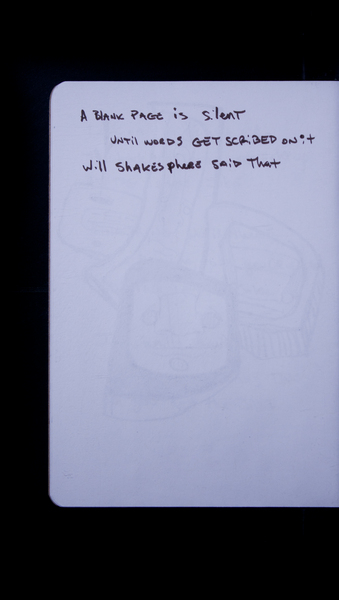 A BLANK PAGE is SilenT
UNTil WORDS GET SCRiBED ON it
Will SHAKESpheRE SAiD THaT